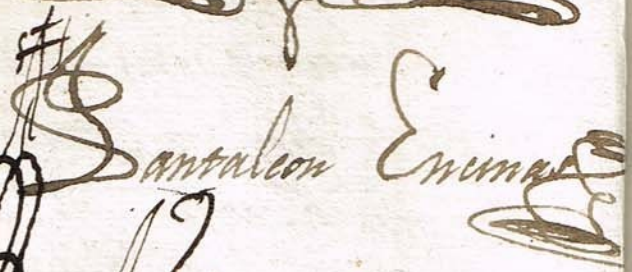 Pantaleon Encinas